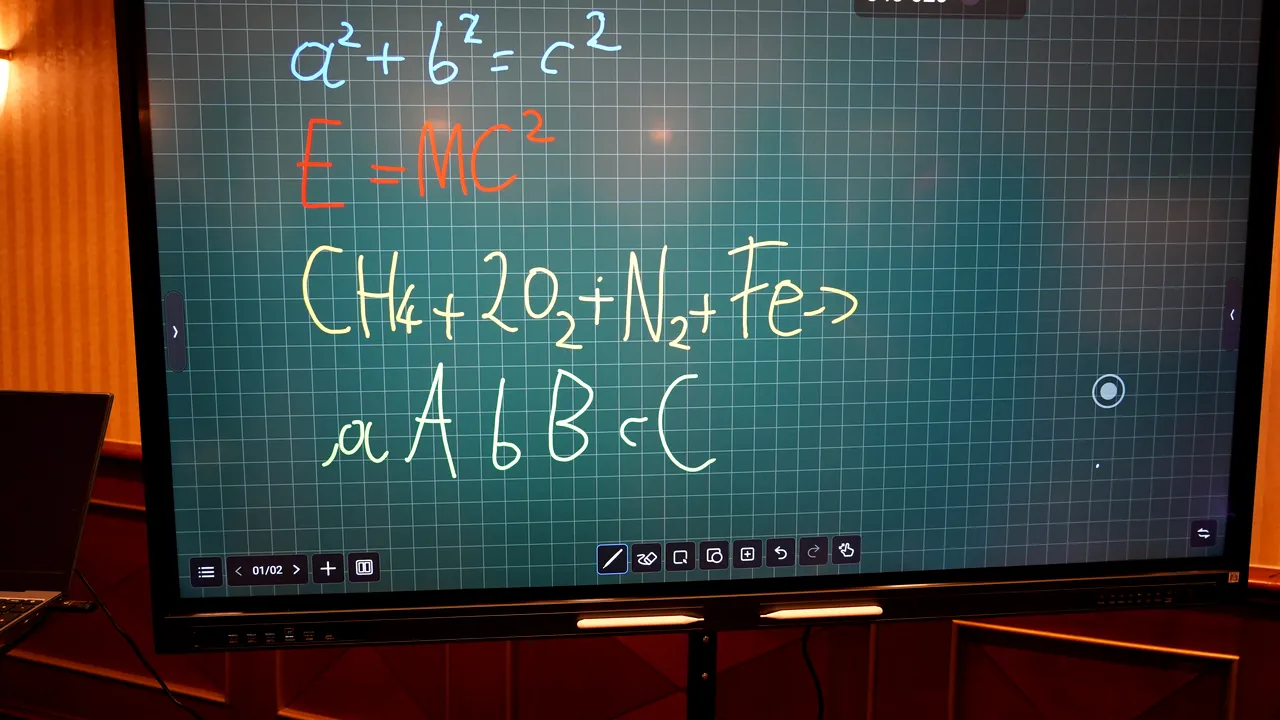 a² + b² = c²
E = MC²
CH₄ + 2O₂ + N₂ + Fe →
a A b B c C
01/02